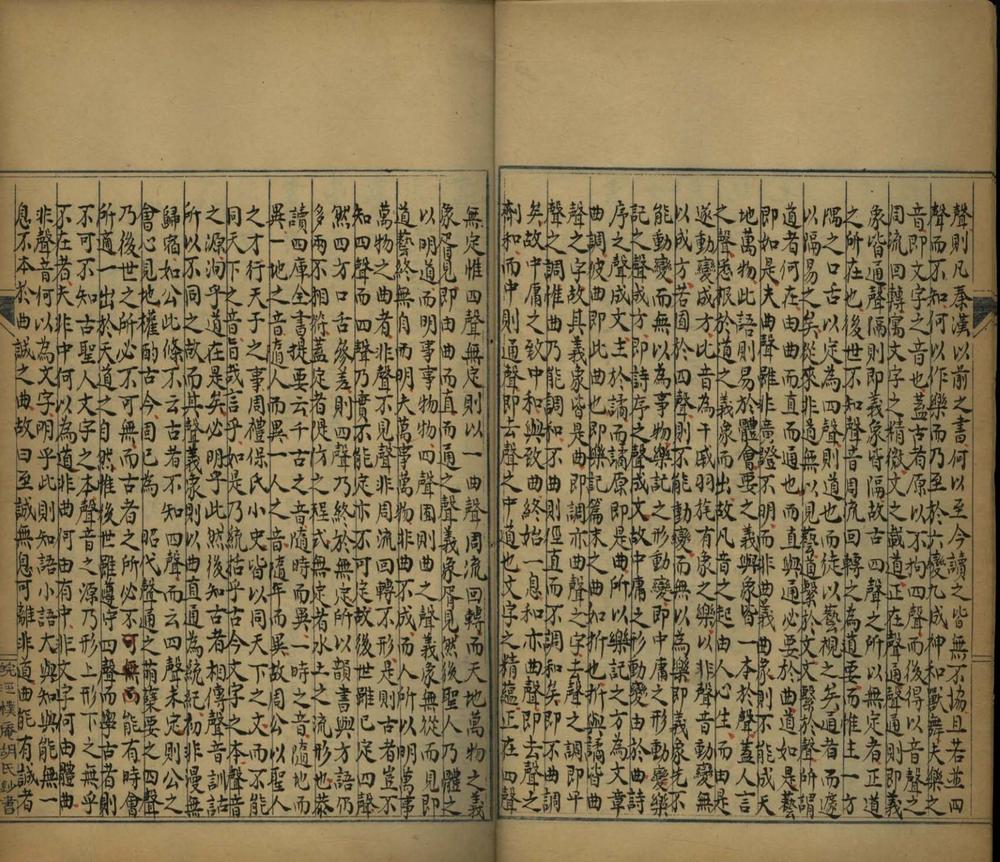 聲則凡秦漢以前之書何以至今讀之皆無不協且若並四
聲而不知何以作樂而乃至於六變九成神和獸舞夫樂之
音即文字之音也蓋古者原以不拘四聲而後得以音聲之
周流回轉寓文字之精微文之載道正在聲通聲通則即義
象皆通聲隔則即義象皆隔故古四聲之所以無定者正道
之所在也後世不知聲音周流回轉之為道要而惟主一方
隅之口舌以定為四聲則道也而徒以藝視之矣道者而遽
以隔易之矣從來非道無以見藝道繫於文文繫於聲所謂
道者何在由曲而直而通也而直與通必於曲道如是藝
即如是夫曲聲雖非廣證不明而非曲義曲象曲本則不能成天
地萬物此語則易於體會要之義與象皆一本於聲蓋人言
之聲悉根於道之義象而出故凡音之起由人心生而由是
遂動變成方比音為干戚羽旄有象之樂以非聲音動變無
以成方若圉於四聲則不能動變而無以為樂即義象先不
能動變而無以為事物樂記之形動變即中庸之形動變樂
記之聲成方即詩序之聲成文故中庸之形動變由曲而詩
序之聲成文主於譎而譎原即是曲所以樂記之方為文章
曲調彼曲即此曲也即樂記篇末之曲如折也折與譎皆曲
聲之字故其義象皆是曲即調亦曲聲之字去聲之調即平
聲之調惟曲乃能調不曲則徑直而不調和矣聲即不曲調
矣故中庸之致中和與致曲終始一息和亦曲聲即去聲
劑和而中則通聲即去聲之中道也文字之精蘊正在四聲
無定惟四聲無定則以一曲聲周流回轉而天地萬物之義
象胥見即由曲而直而通之聲義象胥見然後聖人乃體之
以明道而明事事物物四聲圉則曲之聲義象無從而見即
道藝終無自而明夫萬事萬物非曲不成而人所以明萬事
萬物之曲者非聲不見聲非周流回轉不曲在古者豈不
知四聲而四聲之乃實不能定亦不可定故後世雖已定四聲
然四方口舌參差則四聲乃終於無定所以韻書與方語仍
多兩不相符蓋定者隄防之程式無定者水土之流形也恭
讀四庫全書提要云千古之音隨時而異一時之音隨地而
異一地之音隨人而異一人之音隨年而異故周公以聖人
之才行天子之事周禮保氏小史皆以同天下之文而不能
同天下之音旨哉言乎如是乃統括乎古今文字之本聲音
之源洵乎道在是矣必明乎此然後知古者相傳聲音訓詁
所以不同之故而其聲義象則以曲直通為統紀初非漫無
歸宿如公此條不云古者不知四聲而云四聲未定則公之
會心見地權酌古今固已為昭代聲通之萌蘖要之四聲
乃後世之所必不可無而古者之所必不可無而能有時會
所適一出於天道之自然惟後世雖遵守四聲而學古者則
不可不知古聖人文字之本聲音之源乃形上形下之無乎
不在者夫非中何以為道非曲何由有中非文字何由體曲
非聲音何以為文字明乎此則知語小語大與知與能無一
息不本於誠之曲故曰至誠無息可離非道曲能有誠者
皖涇樸庵胡氏鈔書